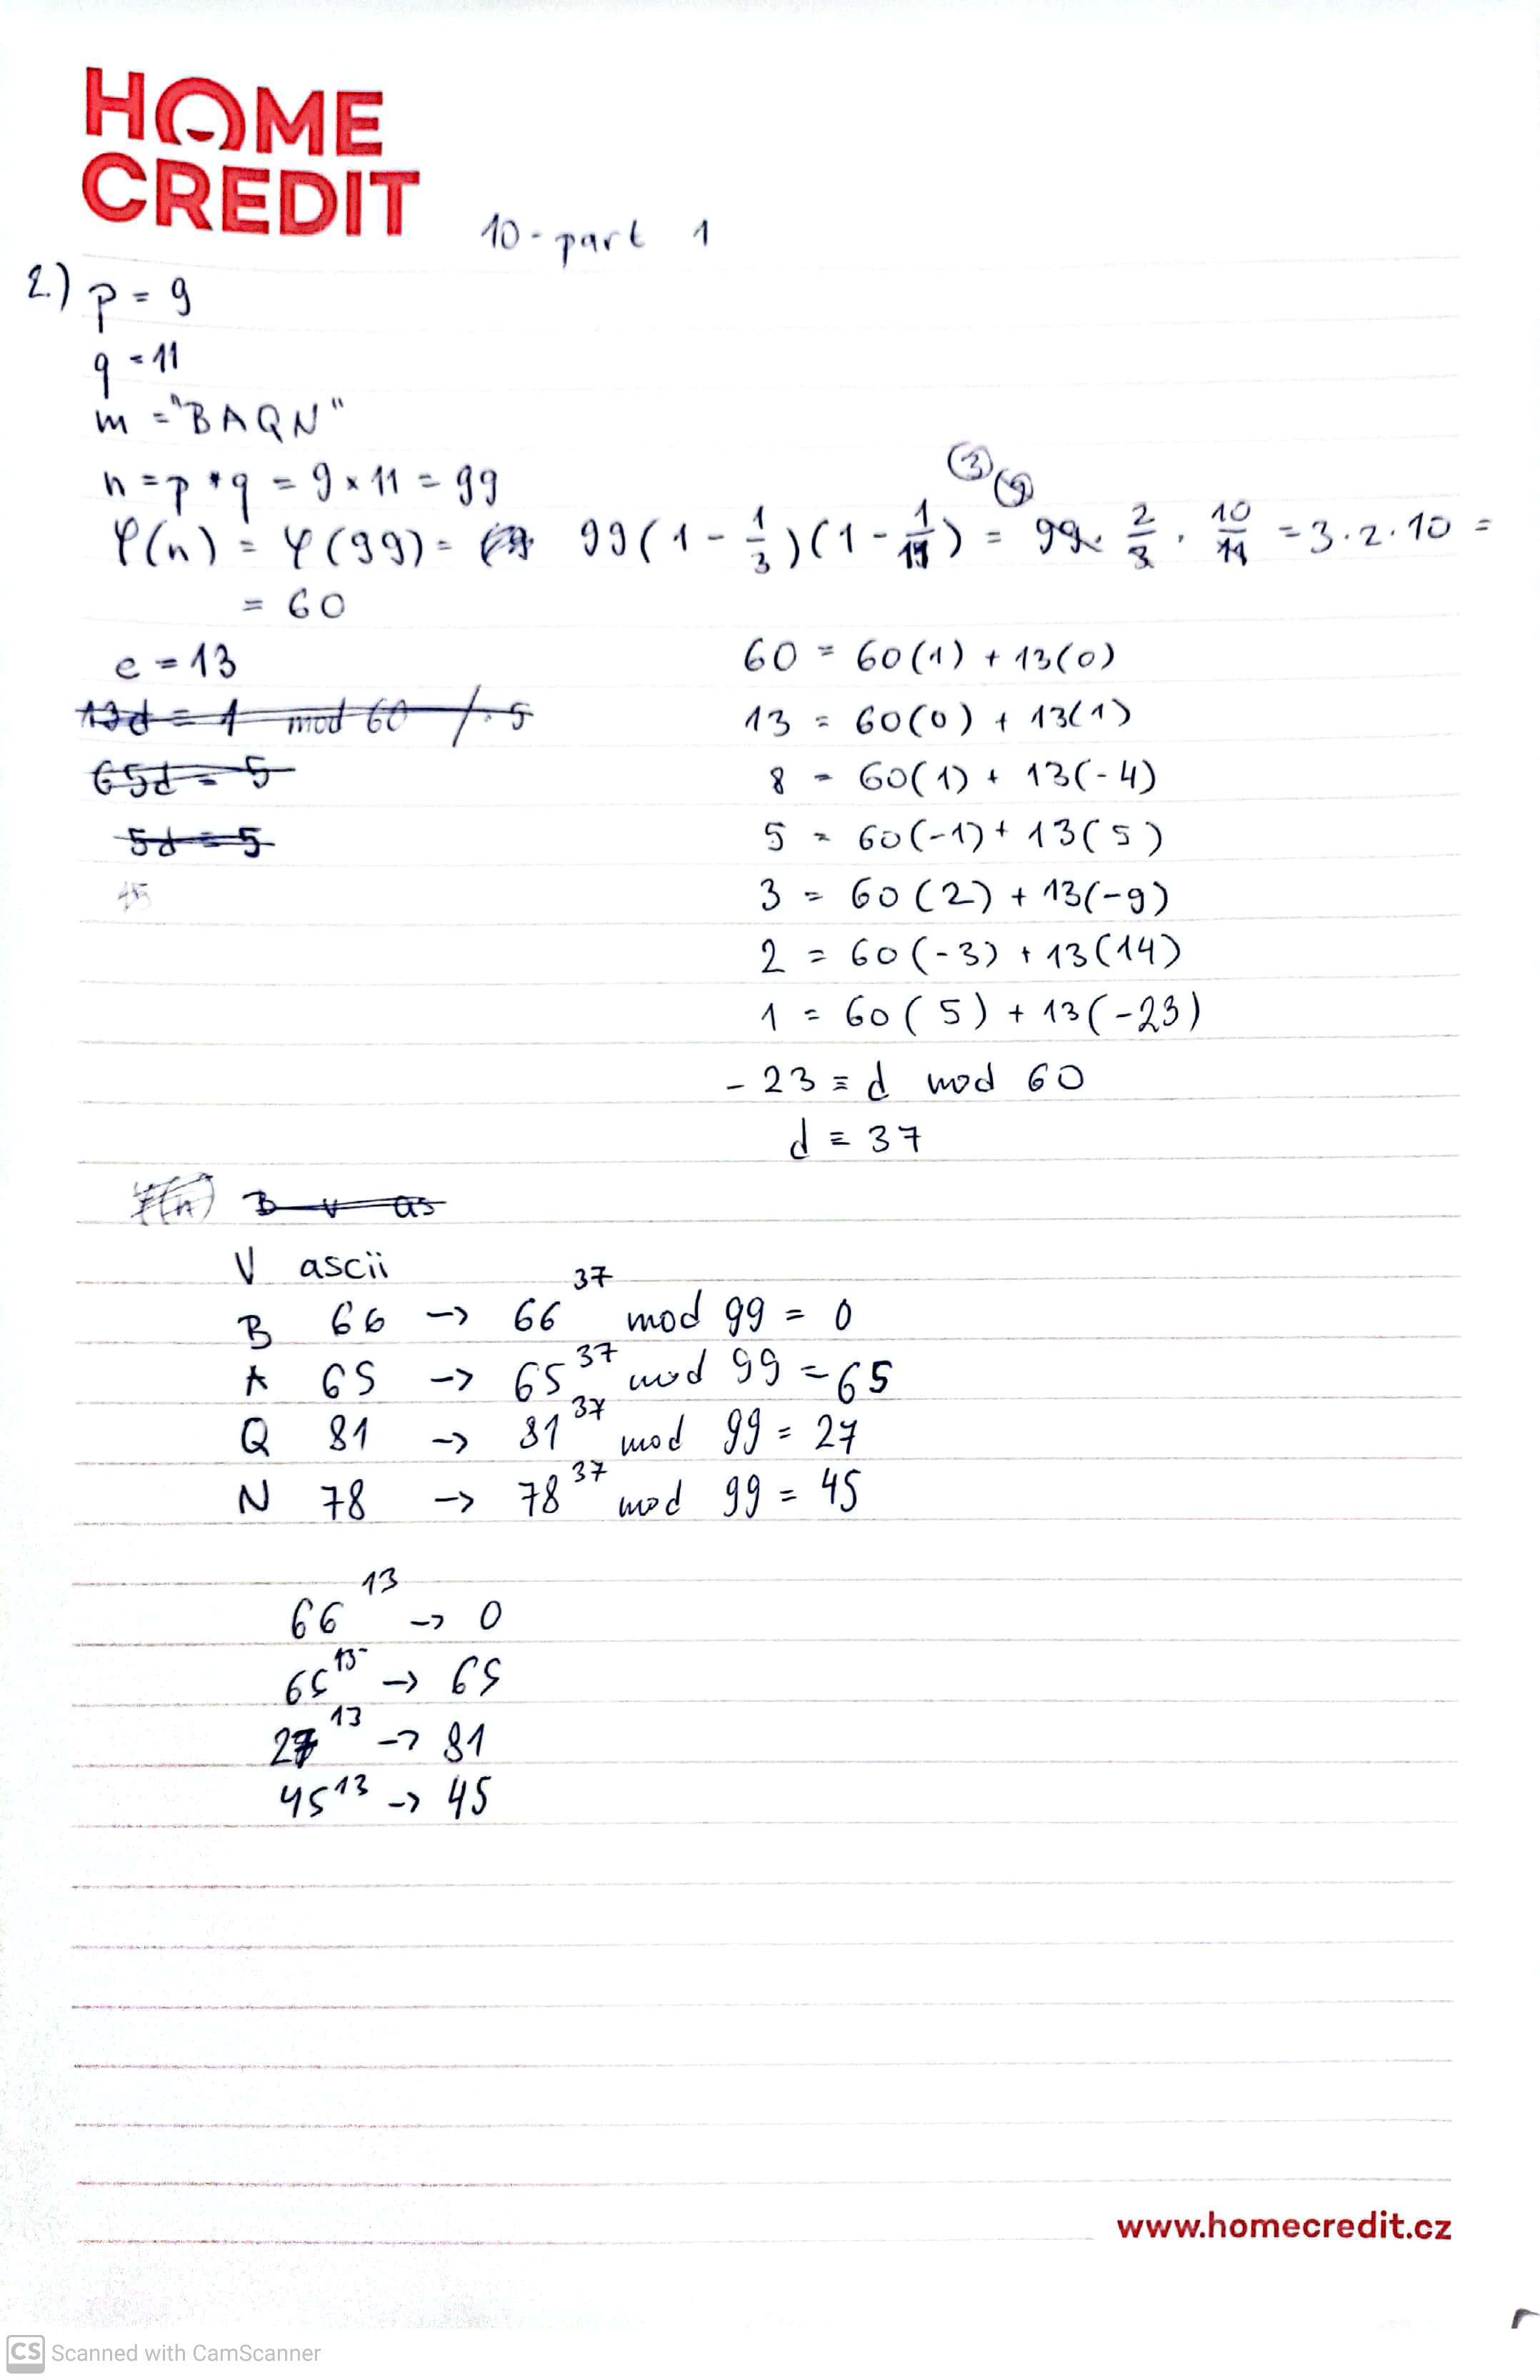 HOME
CREDIT
10 - part 1
2.) p = 9
q = 11
m = "BAQN"
n = p * q = 9 x 11 = 99
③ ⑨
φ(n) = φ(99) = 99(1 - 1/3)(1 - 1/11) = 99 · 2/3 · 10/11 = 3 · 2 · 10 =
= 60
e = 13
13d = 1 mod 60 / · 5
65d = 5
5d = 5
45
60 = 60(1) + 13(0)
13 = 60(0) + 13(1)
8 = 60(1) + 13(-4)
5 = 60(-1) + 13(5)
3 = 60(2) + 13(-9)
2 = 60(-3) + 13(14)
1 = 60(5) + 13(-23)
- 23 ≡ d mod 60
d ≡ 37
φ(n) B v as
V ascii
B 66 -> 66^37 mod 99 = 0
A 65 -> 65^37 mod 99 = 65
Q 81 -> 81^37 mod 99 = 27
N 78 -> 78^37 mod 99 = 45
66^13 -> 0
65^13 -> 65
27^13 -> 81
45^13 -> 45
www.homecredit.cz
CS Scanned with CamScanner